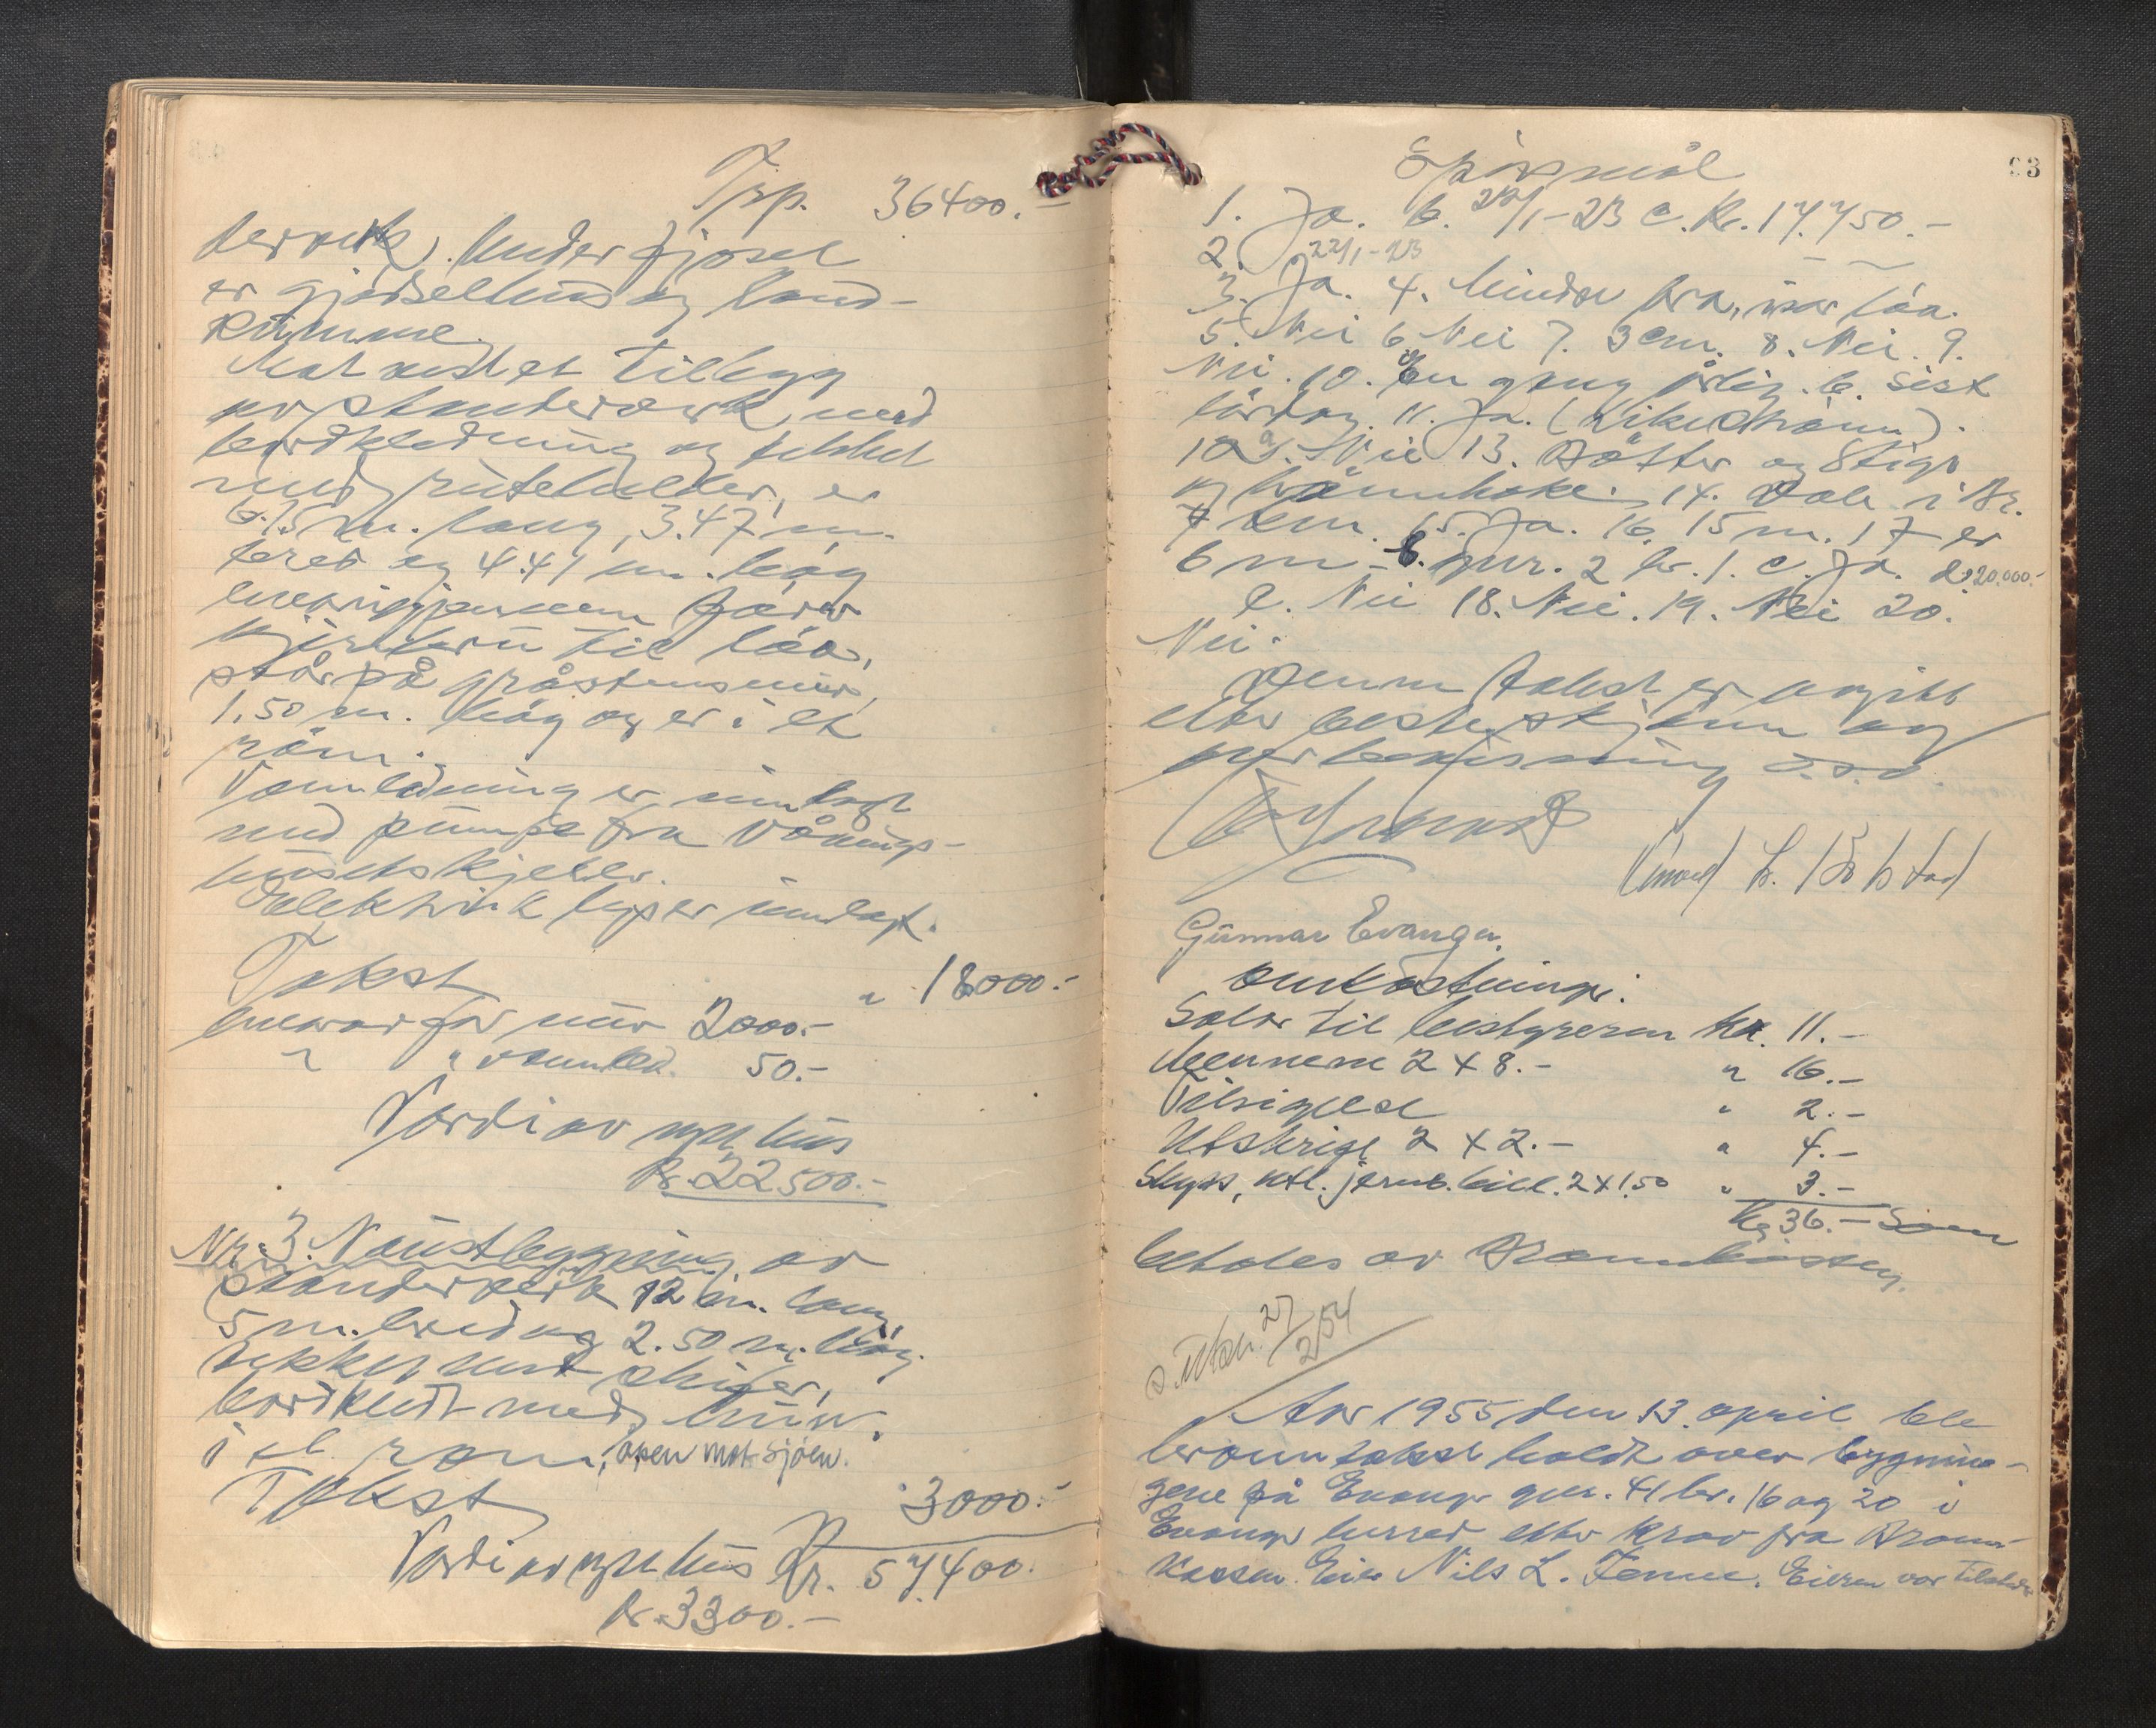 Trp. 36400.-
derverk. Under fjøset
er gjødselhus og land-
kumme.
Mot vest et tillegg
av stenderverk med
bordkledning og tekket
med ruteheller, er
6.75 m. lang, 3.47 m.
bred og 4.41 m. høg
innkjørsel til løa,
står på gråsteinsmur,
1.50 m. høg og er i et
rom.
Vannledning er innlagt
med pumpe fra vånings-
husets kjeller.
Elektrisk lys er innlagt.
Takst " 18000.-
Herav for mur 2000.-
" " vannled. 50.-
Verdi av nytt hus
kr. 22500.-
Nr. 3. Naustbygning av
stenderverk 12 m. lang,
5 m. bred og 2.50 m. høg.
tekket med skifer,
bordkledt med
i et rom, åpen mot sjøen.
Takst " 3000.-
Verdi av nytt hus Kr. 57.400.
kr. 3300.-
93
Spørsmål
1. Ja. b. 22/1-23 c. Kr. 17.750.-
2. 22/1-23
3. Ja. 4. Mindre bra, især løa.
5. Nei 6. Nei 7. 3 cm. 8. Nei. 9.
Nei. 10. En gang årlig. b. sist
lørdag. 11. Ja.
12 a. Nei 13. Bøtter og Stige
og brannhake. 14. Dale i Br.
7 km. 15. Ja. 16. 15 m. 17 er
6 m - b. gnr. 2 br. 1. c. Ja. d. 20.000.-
e. Nei 18. Nei. 19. Nei 20.
Nei.
Denne takst er avgitt
etter beste skjønn og
overbevisning
Gunnar Evanger
Omkostninger.
Salær til bestyreren kr. 11.-
Mennene 2 x 8.- " 16.-
Tilsigelse " 2.-
Utskrift 2 x 2.- " 4.-
Skyss, utl. jernb.bill. 2 x 1.50 " 3.-
Kr 36.- Som
betales av Brannkassen.
s. Utskr. 27/2 54
Aar 1955 den 13. april ble
branntakst holdt over bygnin-
gene på Evanger gnr. 41 br. 16 og 20 i
Evanger herred etter krav fra Brann-
kassen. Eier Nils L. Jenne. Eieren var tilstede